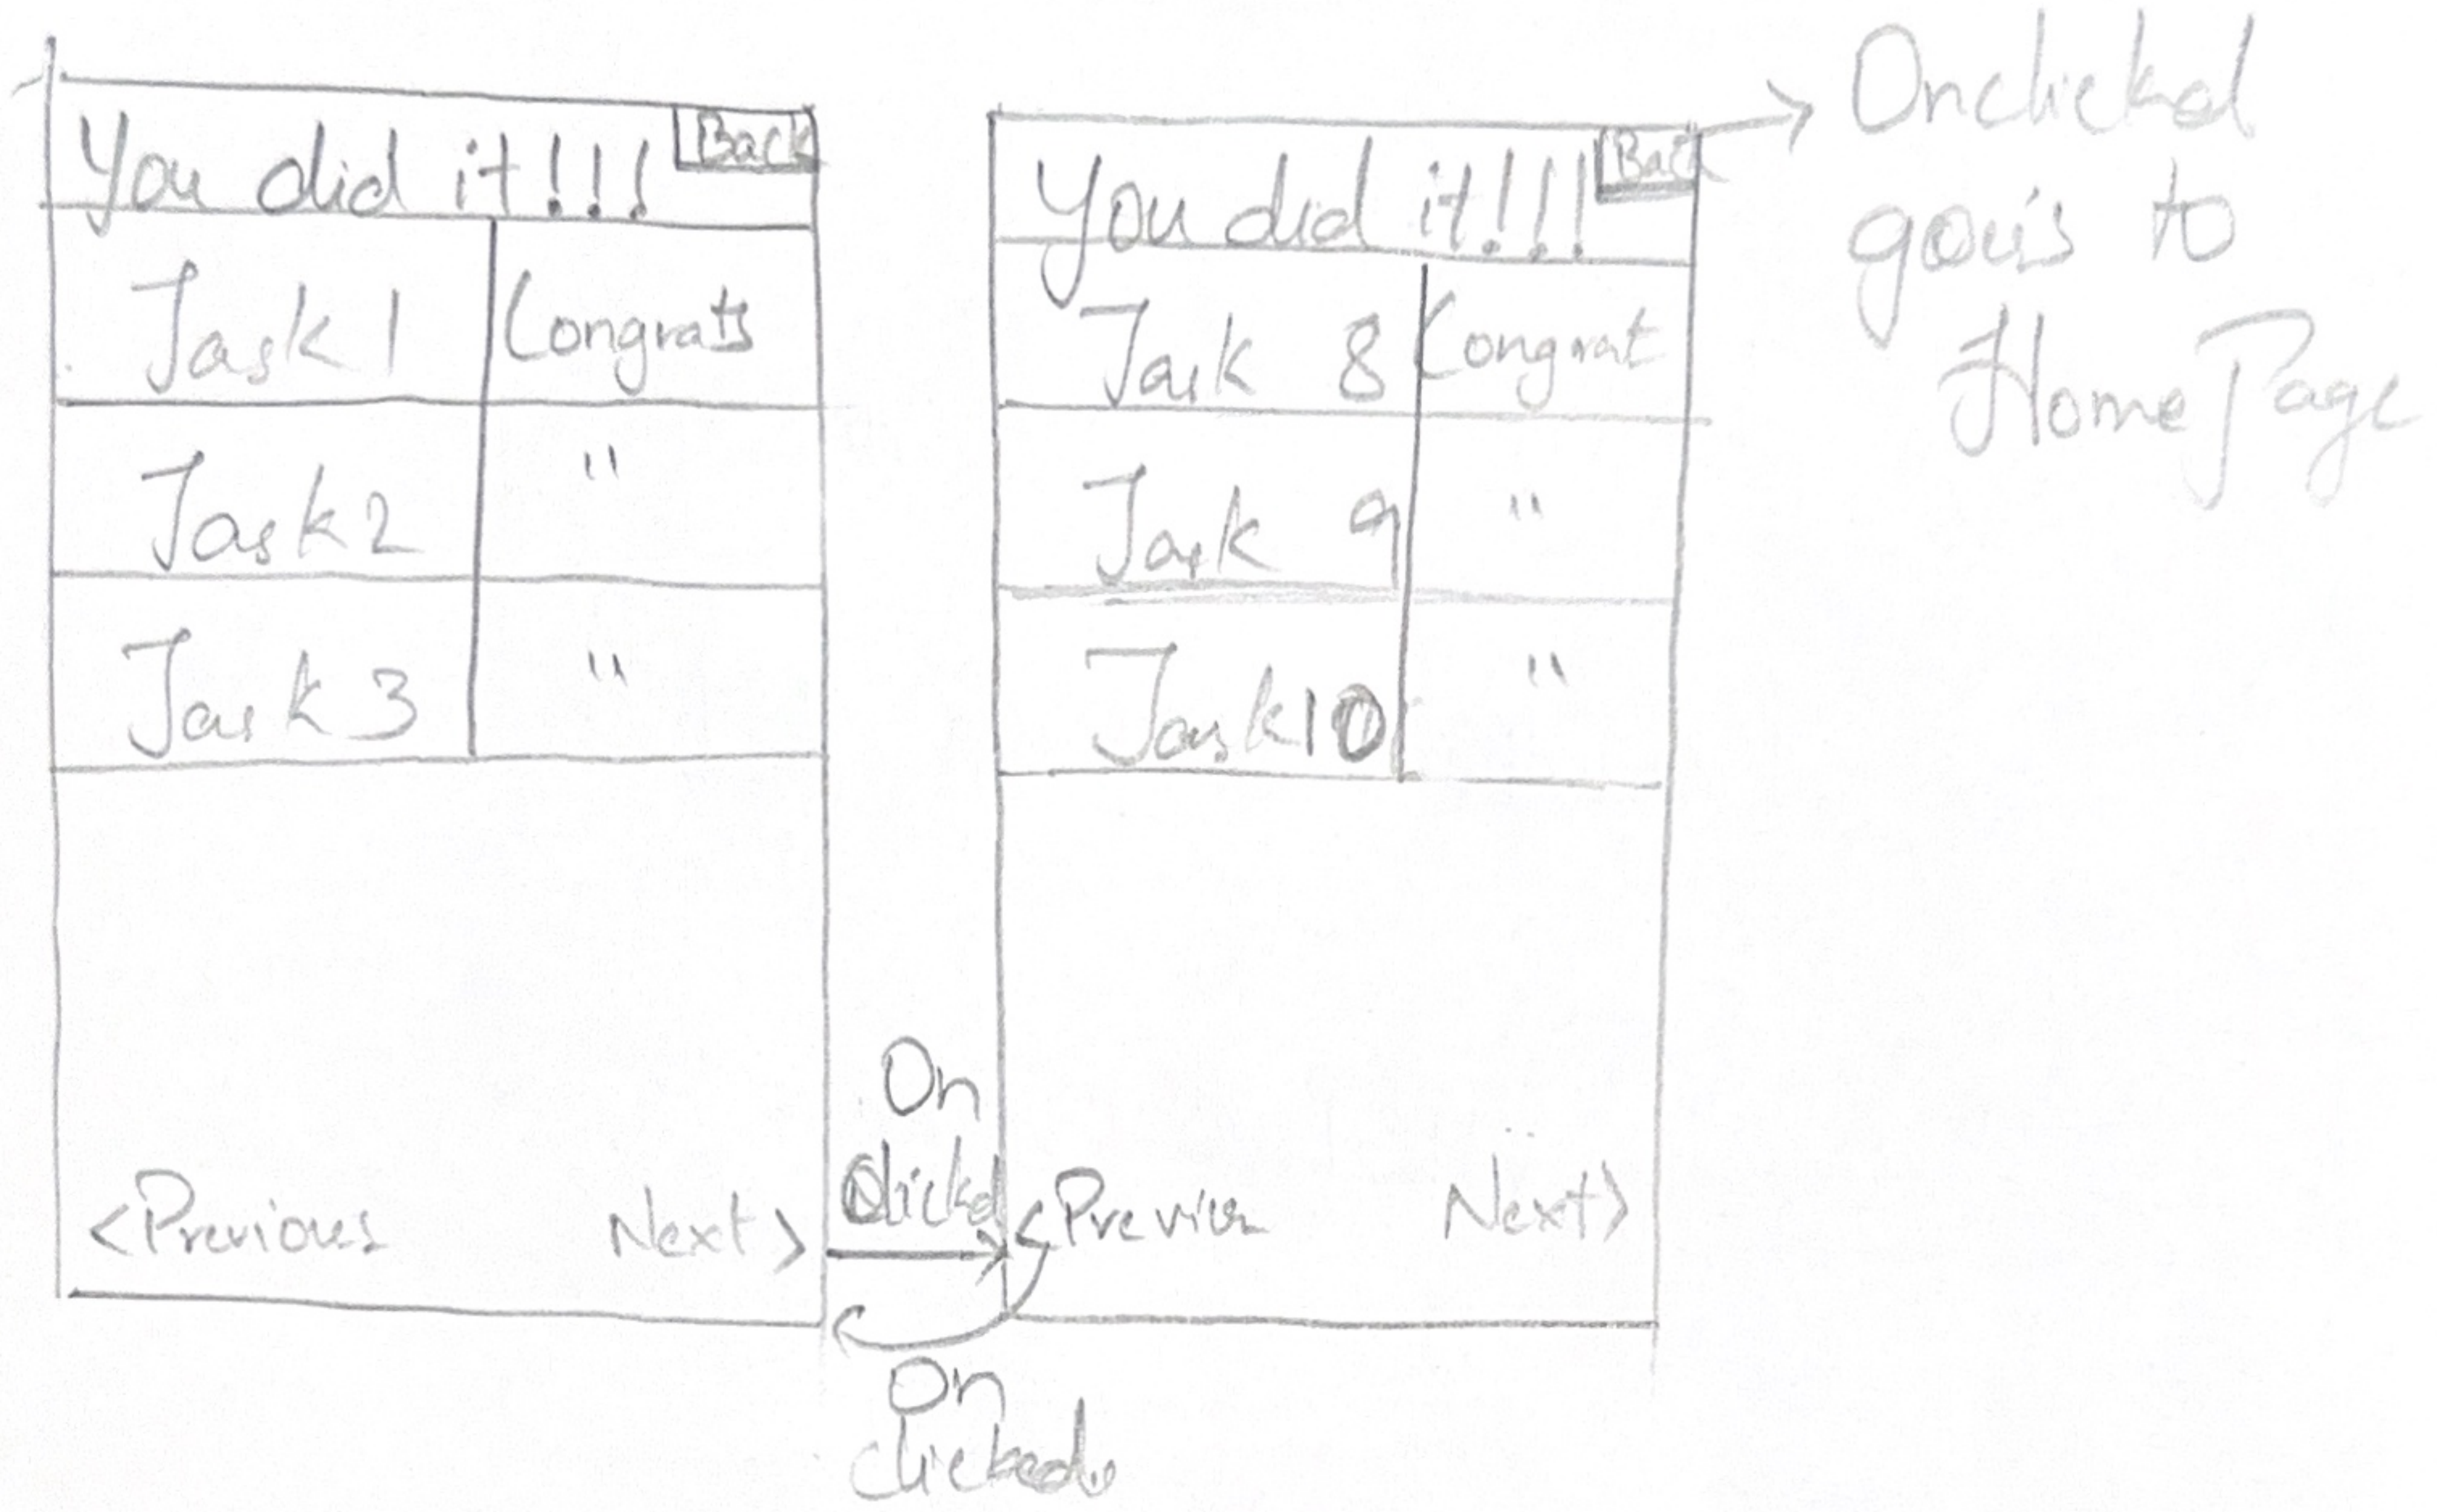 You did it!!! Back
Task 1 Congrats
Task 2 "
Task 3 "
<Previous Next>
On
Clicked
On
clicked
You did it!!! Back
Task 8 Congrat
Task 9 "
Task 10 "
<Previou Next>
Onclicked
goes to
Home Page